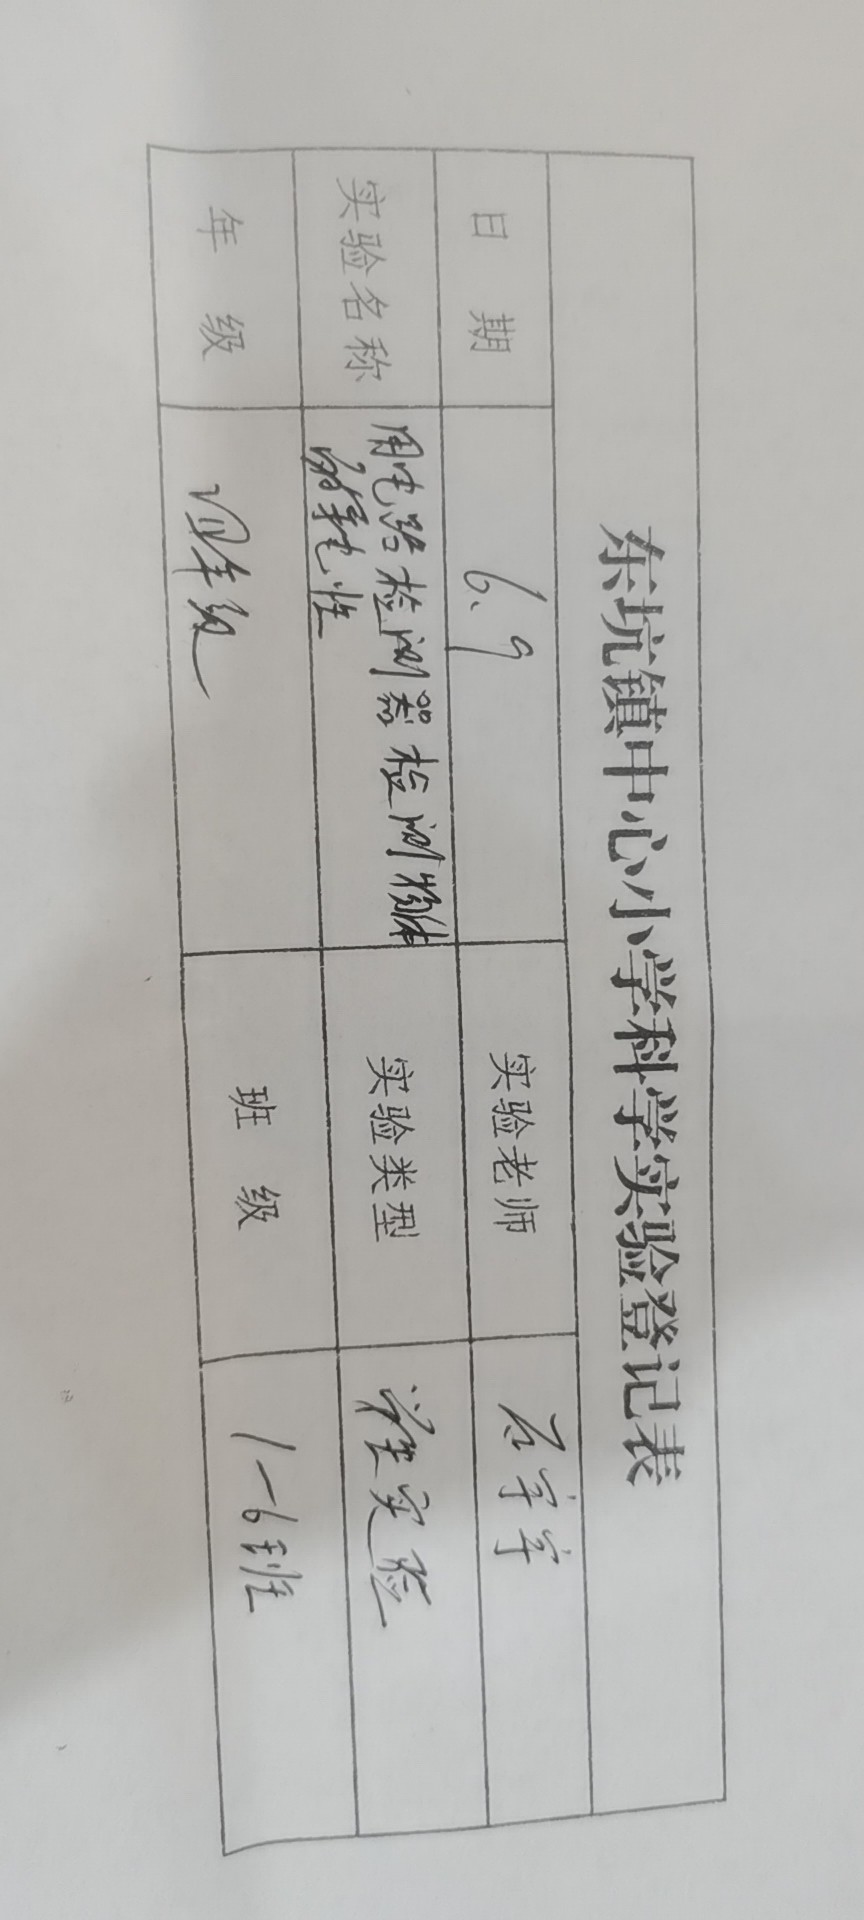 东坑镇中心小学科学实验登记表
日 期 6.9 实验老师 石宇宇
实验名称 用电路检测器检测物体 实验类型 学生实验
的导电性
年 级 四年级 班 级 1-6班